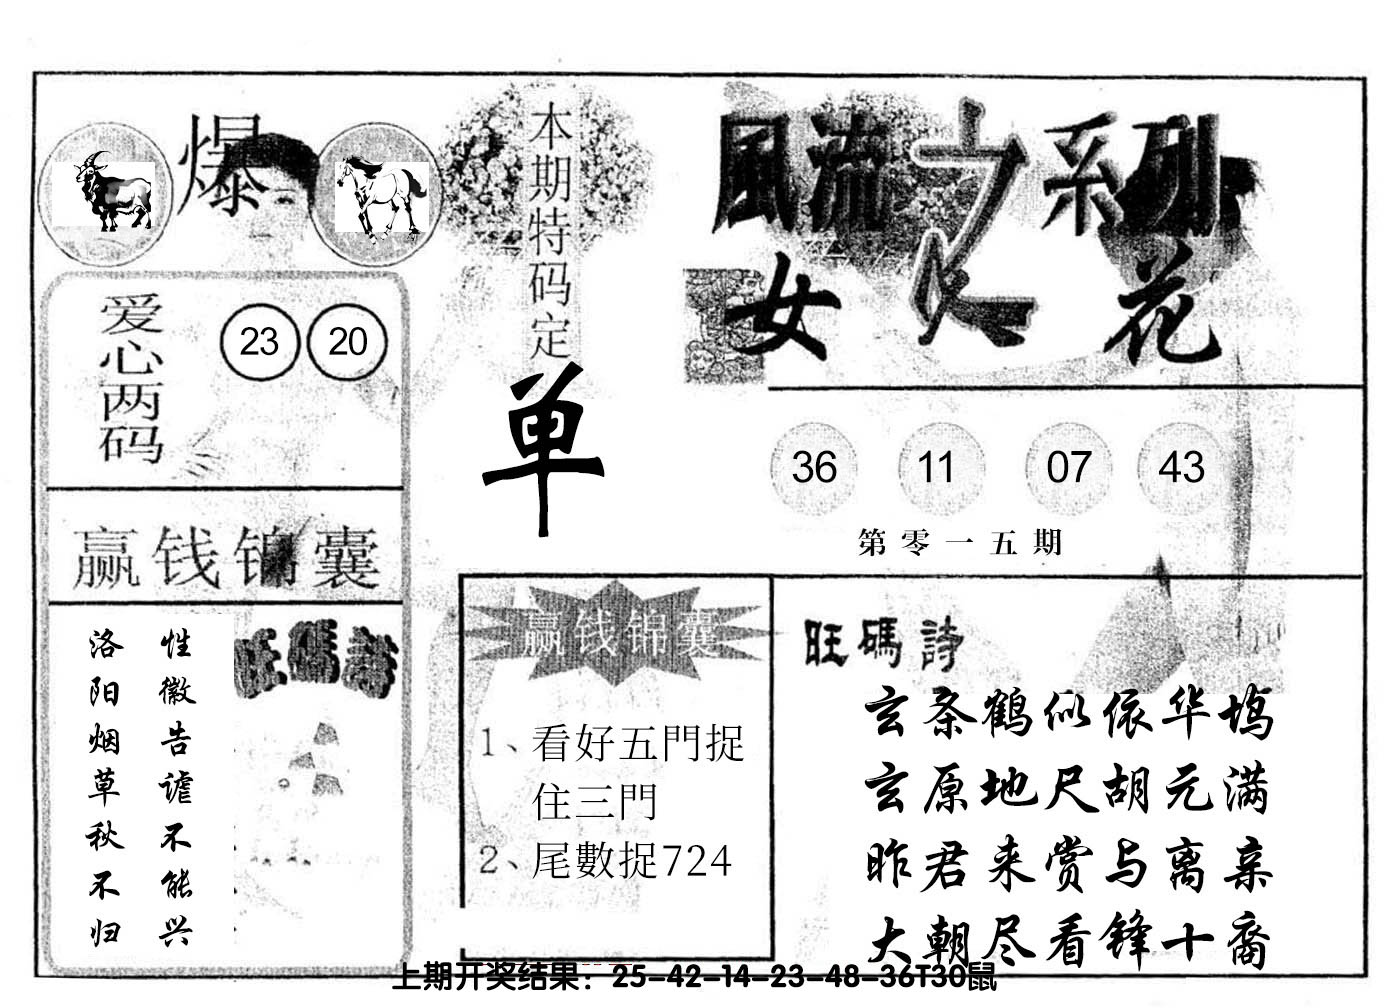 爆
本期特码定
单
風流之系列
女人花
爱心两码
23 20
36 11 07 43
第零一五期
赢钱锦囊
性徽告谑不能兴
洛阳烟草秋不归
旺碼詩
赢钱锦囊
1、看好五門捉
住三門
2、尾數捉724
旺碼詩
玄条鹤似依华坞
玄原地尺胡元满
昨君来赏与离亲
大朝尽看锋十裔
上期开奖结果：25-42-14-23-48-36T30鼠